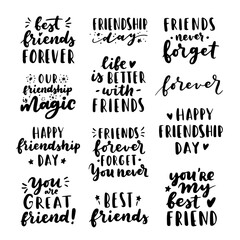 best
friends
FOREVER
FRIENDSHIP
day
FRIENDS
never
forget
OUR
friendship
is
magic
life
is BETTER
with
FRIENDS
forever
HAPPY
friendship
DAY
FRIENDS
forever
FORGET
You never
HAPPY
FRIENDSHIP
DAY
You
are
GREAT
friend!
BEST
friends
you're
my
best
FRIEND